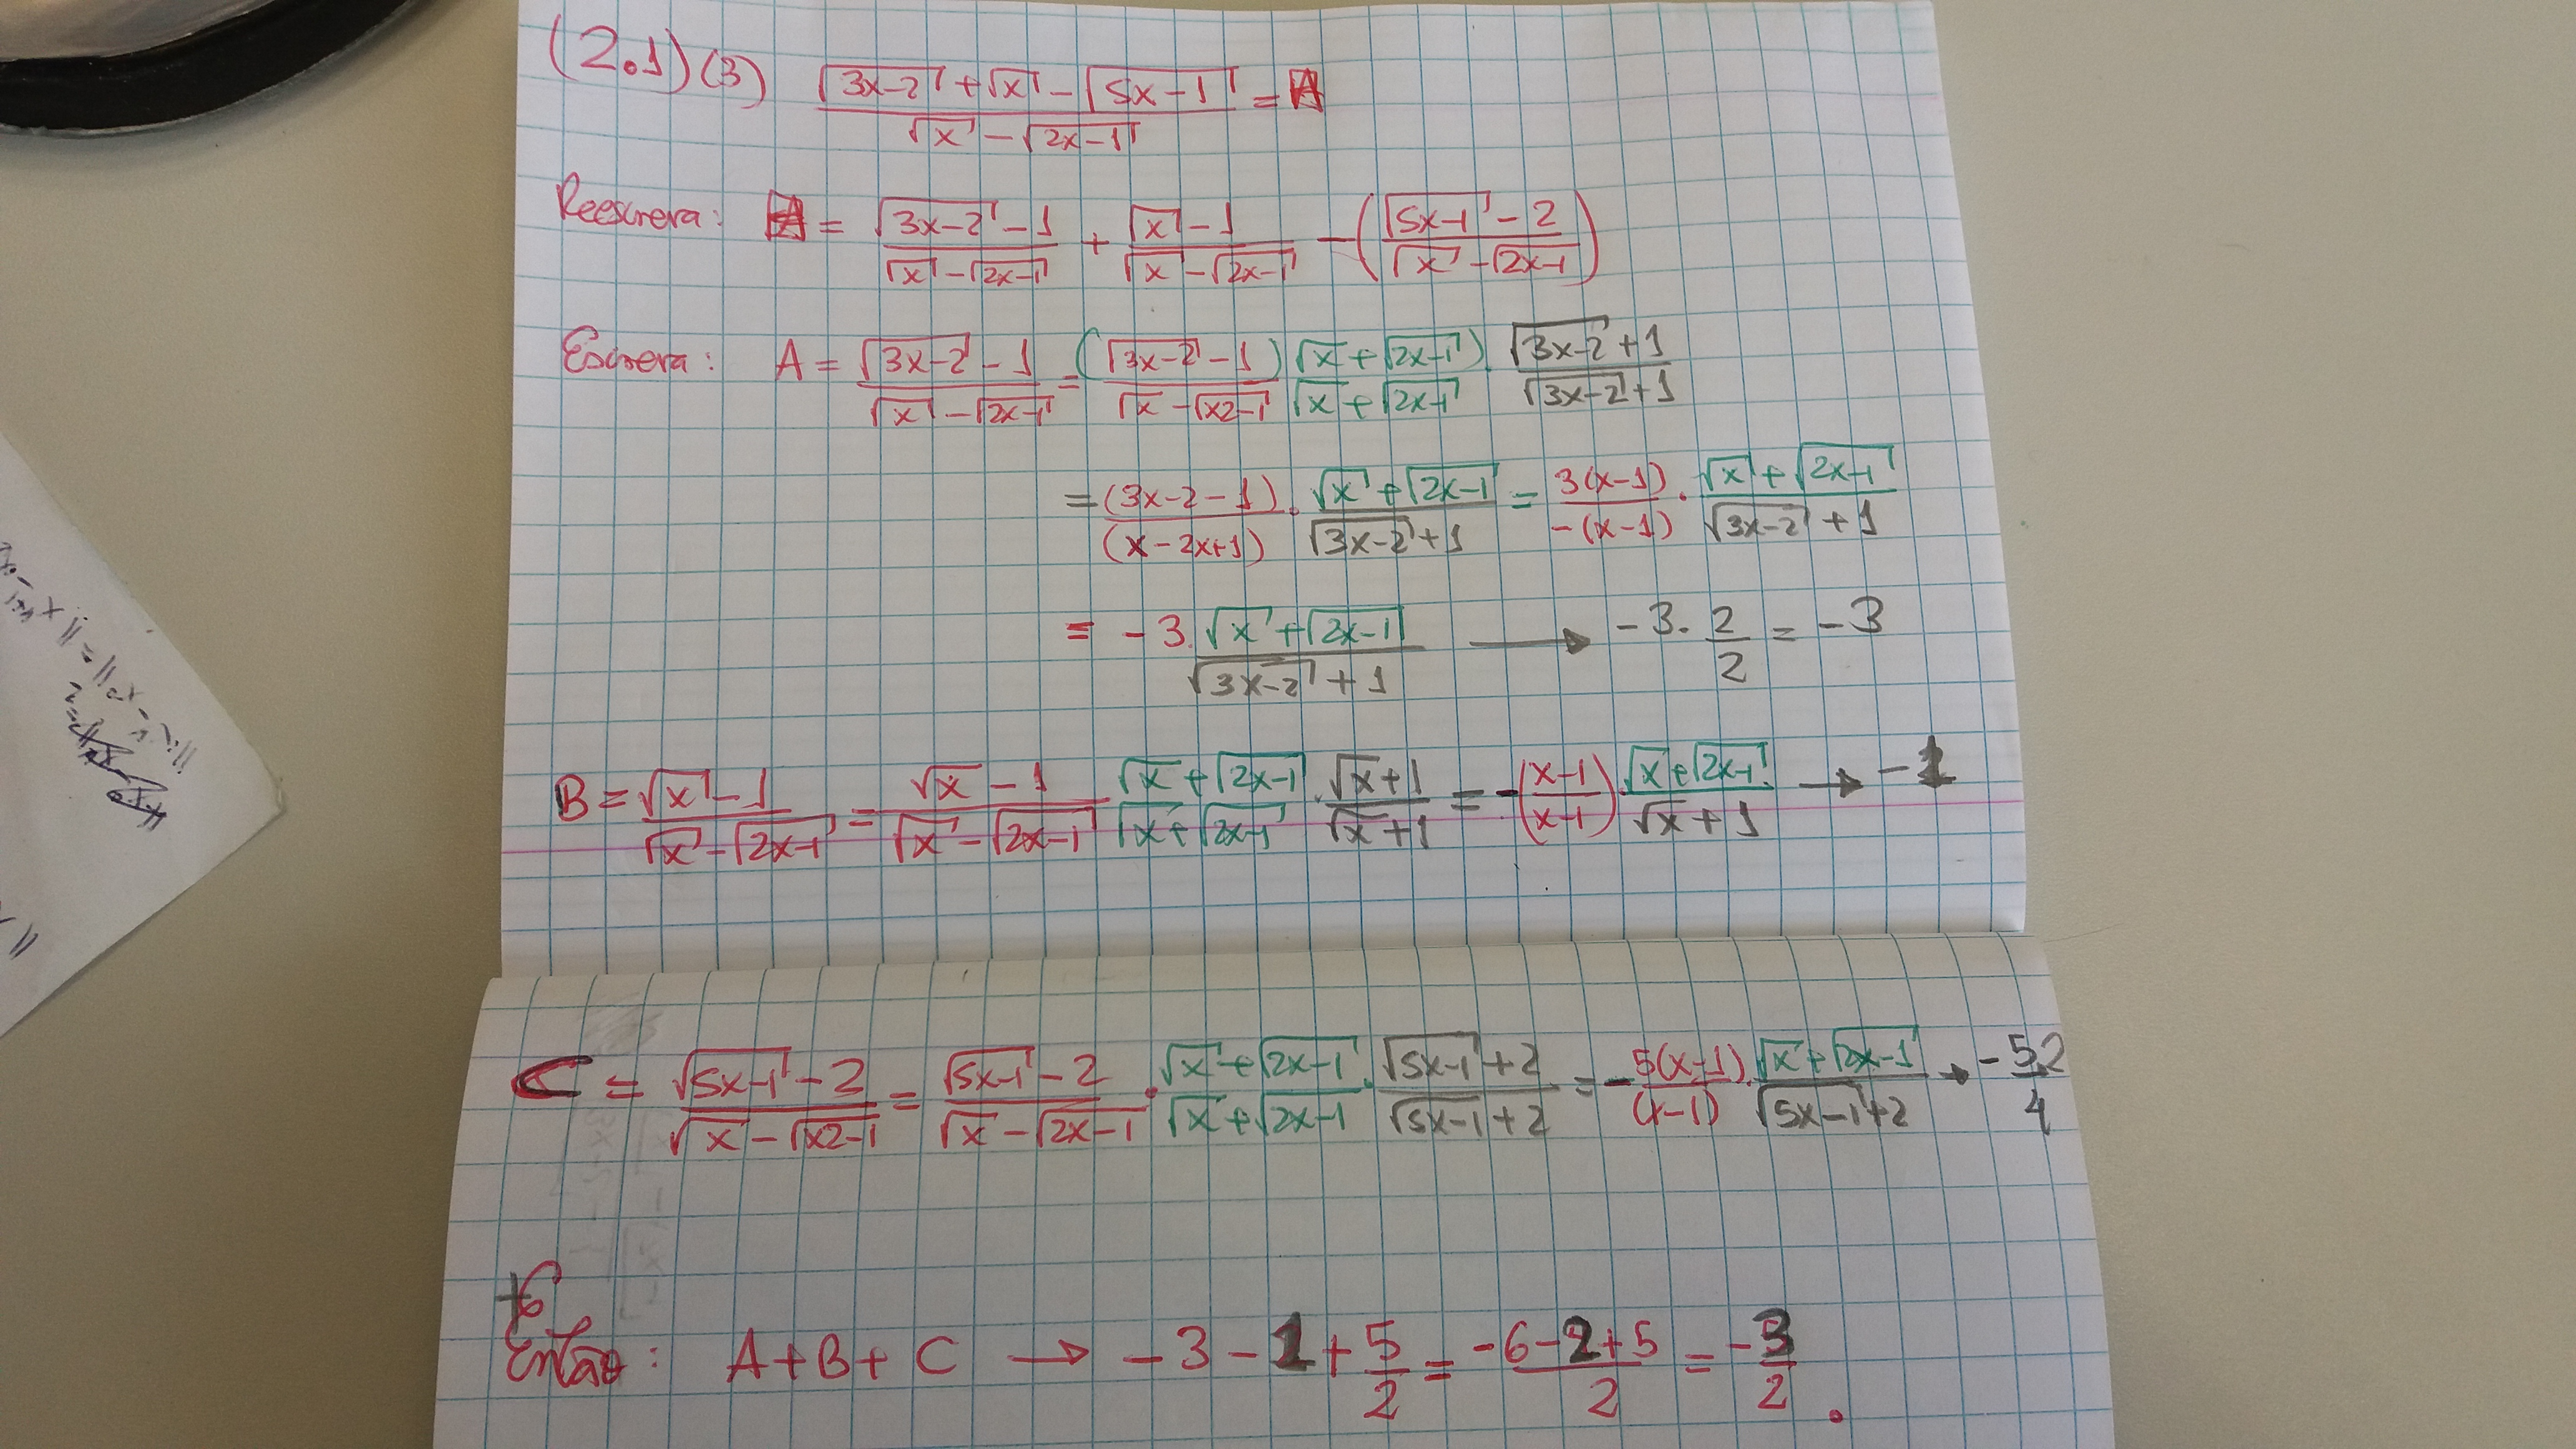 (2.1)(3) (√(3x-2) + √x - √(5x-1)) / (√x - √(2x-1)) = A
Reescreva: A = (√(3x-2) - 1)/(√x - √(2x-1)) + (√x - 1)/(√x - √(2x-1)) - ((√(5x-1) - 2)/(√x - √(2x-1)))
Escreva: A = (√(3x-2) - 1)/(√x - √(2x-1)) = (√(3x-2) - 1)/(√x - √(x2-1)) (√x + √(2x-1))/(√x + √(2x-1)) . (√(3x-2) + 1)/(√(3x-2) + 1)
= (3x-2-1)/(x-2x+1) . (√x + √(2x-1))/(√(3x-2) + 1) = 3(x-1)/-(x-1) . (√x + √(2x-1))/(√(3x-2) + 1)
= -3 . (√x + √(2x-1))/(√(3x-2) + 1) → -3 . 2/2 = -3
B = (√x - 1)/(√x - √(2x-1)) = (√x - 1)/(√x - √(2x-1)) (√x + √(2x-1))/(√x + √(2x-1)) . (√x + 1)/(√x + 1) = -((x-1)/(x-1)) . (√x + √(2x-1))/(√x + 1) → -1
C = (√(5x-1) - 2)/(√x - √(x2-1)) = (√(5x-1) - 2)/(√x - √(2x-1)) . (√x + √(2x-1))/(√x + √(2x-1)) . (√(5x-1) + 2)/(√(5x-1) + 2) = - 5(x-1)/(x-1) . (√x + √(2x-1))/(√(5x-1) + 2) → -5.2/4
Então: A + B + C → -3 - 1 + 5/2 = (-6-2+5)/2 = -3/2 .